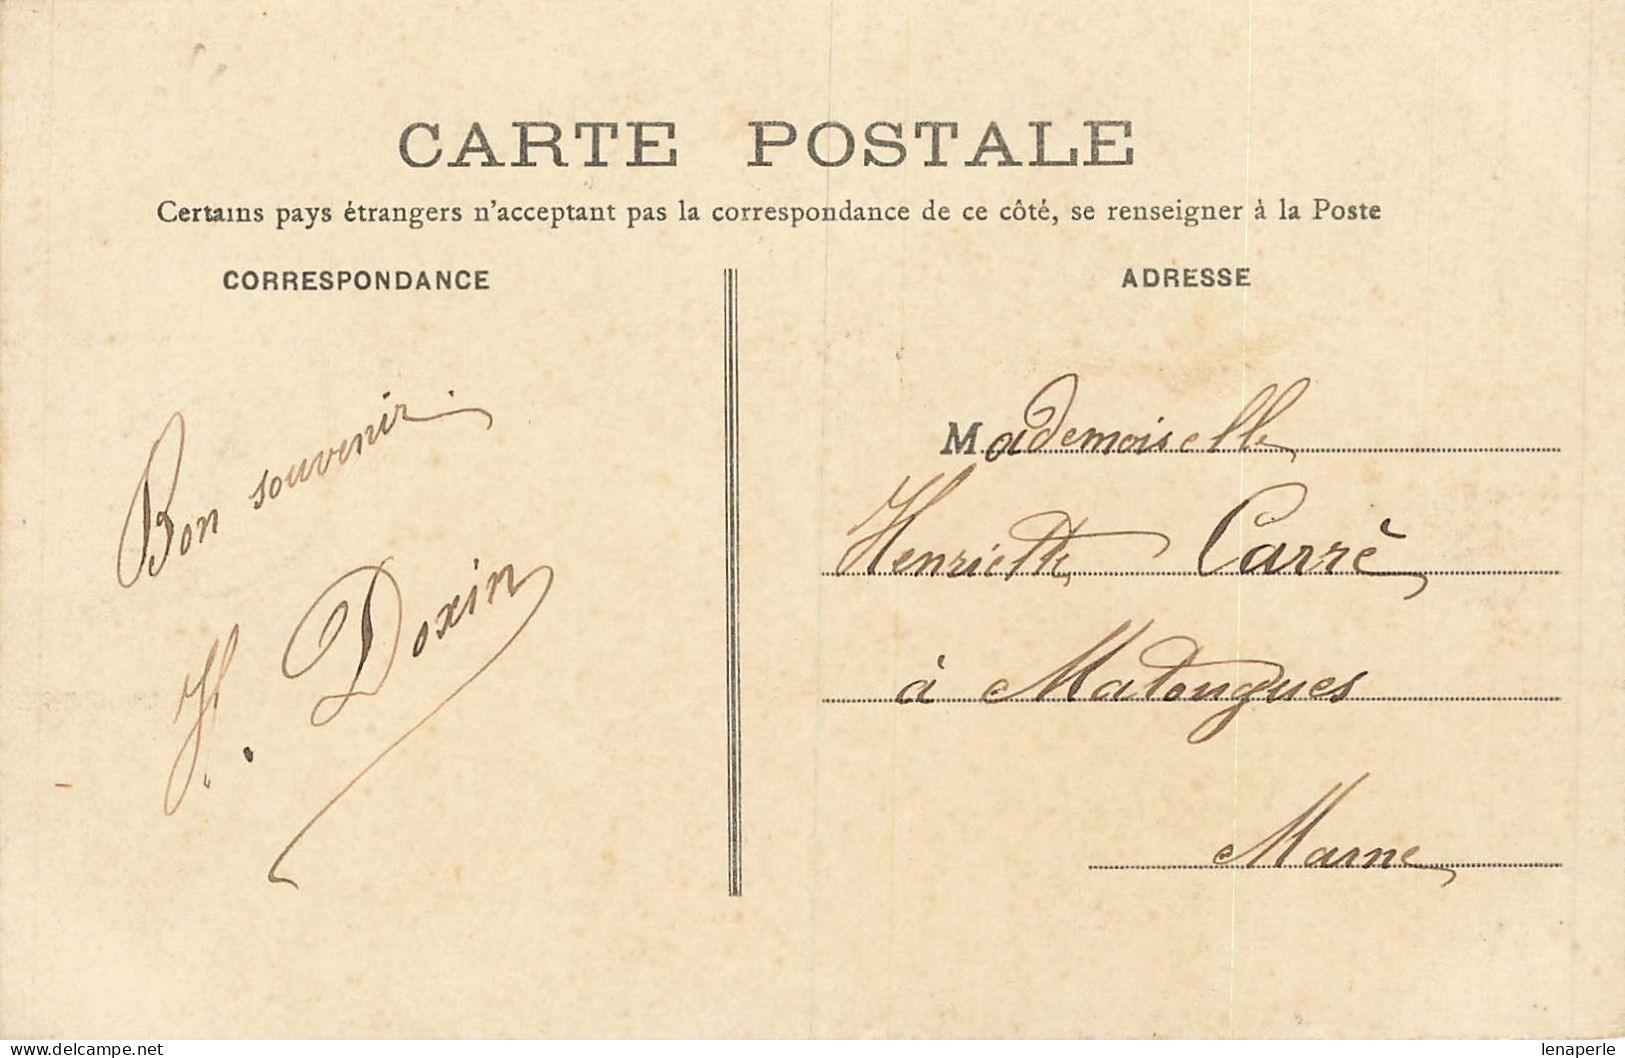 CARTE POSTALE
Certains pays étrangers n'acceptant pas la correspondance de ce côté, se renseigner à la Poste
CORRESPONDANCE
Bon souvenir.
H. Doxin
ADRESSE
Mademoiselle
Henriette Carré
à Matougues
Marne
www.delcampe.net
lenaperle